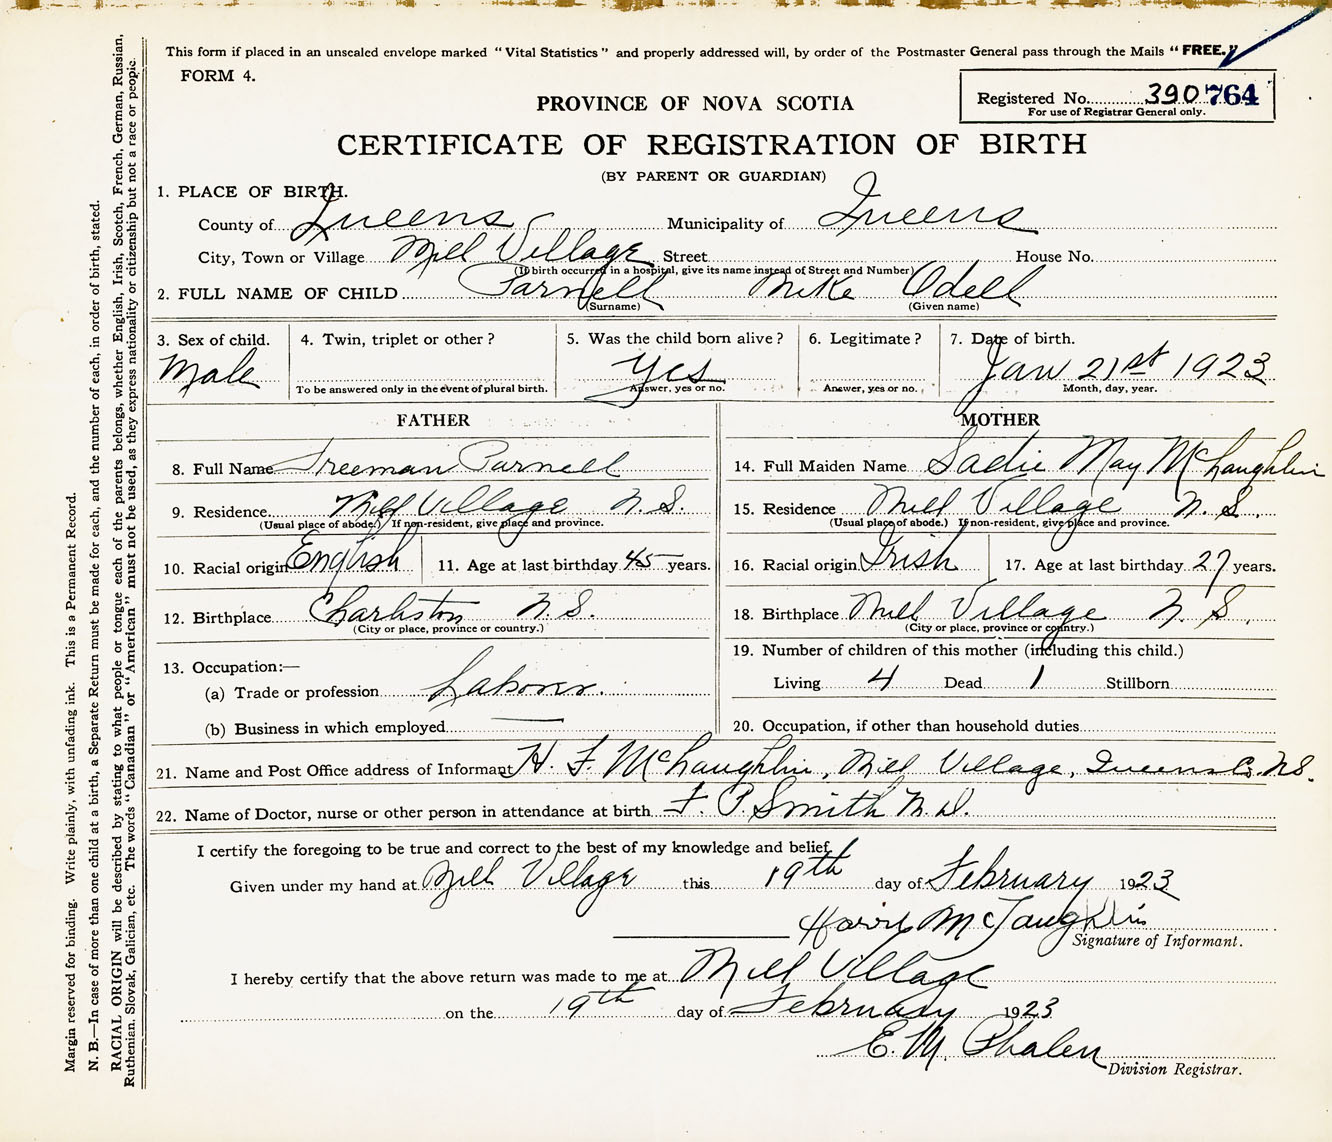 This form if placed in an unsealed envelope marked "Vital Statistics" and properly addressed will, by order of the Postmaster General pass through the Mails "FREE."
FORM 4.
Registered No. 390 764
For use of Registrar General only.
PROVINCE OF NOVA SCOTIA
CERTIFICATE OF REGISTRATION OF BIRTH
(BY PARENT OR GUARDIAN)
1. PLACE OF BIRTH.
County of Queens Municipality of Queens
City, Town or Village Mill Village Street House No.
(If birth occurred in a hospital, give its name instead of Street and Number)
2. FULL NAME OF CHILD Parnell Mike Odell
(Surname) (Given name)
3. Sex of child. 4. Twin, triplet or other? 5. Was the child born alive? 6. Legitimate? 7. Date of birth.
Male Yes Jan 21st 1923
To be answered only in the event of plural birth. Answer, yes or no. Answer, yes or no. Month, day, year.
FATHER
8. Full Name Freeman Parnell
9. Residence Mill Village N.S.
(Usual place of abode.) If non-resident, give place and province.
10. Racial origin English 11. Age at last birthday 45 years.
12. Birthplace Charleston N.S.
(City or place, province or country.)
13. Occupation:—
(a) Trade or profession Laborer.
(b) Business in which employed
MOTHER
14. Full Maiden Name Sadie May McLaughlin
15. Residence Mill Village N.S.
(Usual place of abode.) If non-resident, give place and province.
16. Racial origin Irish 17. Age at last birthday 27 years.
18. Birthplace Mill Village N.S.
(City or place, province or country.)
19. Number of children of this mother (including this child.)
Living 4 Dead 1 Stillborn
20. Occupation, if other than household duties
21. Name and Post Office address of Informant H. F. McLaughlin, Mill Village, Queens Co. N.S.
22. Name of Doctor, nurse or other person in attendance at birth F. P. Smith M.D.
I certify the foregoing to be true and correct to the best of my knowledge and belief.
Given under my hand at Mill Village this 19th day of February 1923
Harry McLaughlin
Signature of Informant.
I hereby certify that the above return was made to me at Mill Village
on the 19th day of February 1923
E. M. Phalen
Division Registrar.
Margin reserved for binding. Write plainly, with unfading ink. This is a Permanent Record.
N. B.—In case of more than one child at a birth, a Separate Return must be made for each, and the number of each, in order of birth, stated.
RACIAL ORIGIN will be described by stating to what people or tongue each of the parents belongs, whether English, Irish, Scotch, French, German, Russian,
Ruthenian, Slovak, Galician, etc. The words "Canadian" or "American" must not be used, as they express nationality or citizenship but not a race or people.